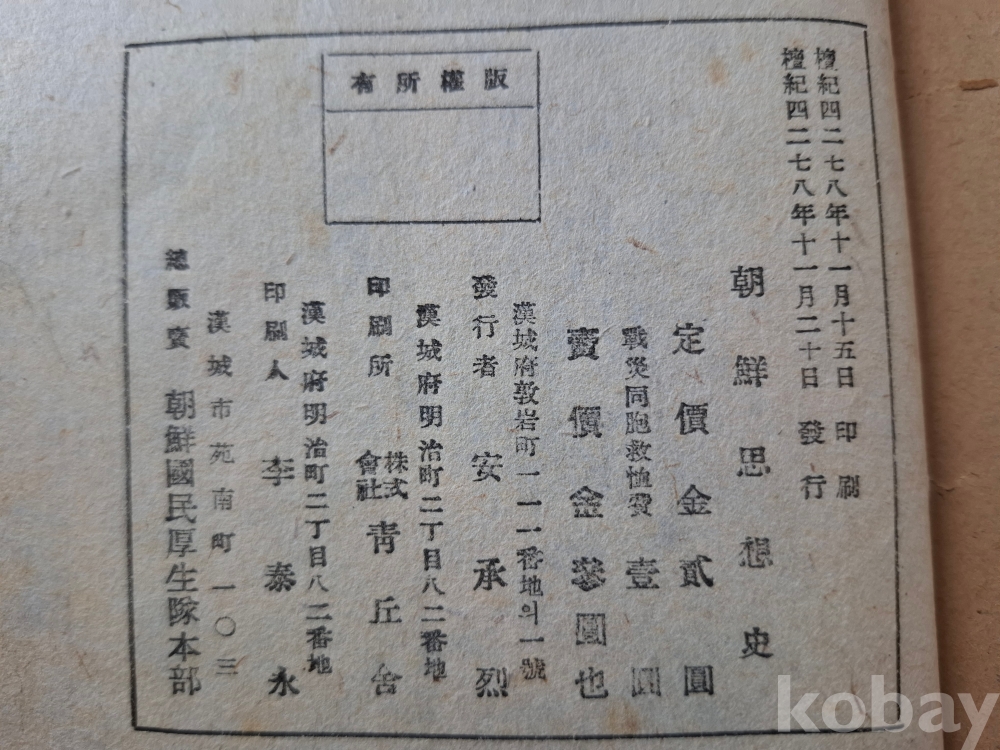 檀紀四二七八年十一月十五日 印刷
檀紀四二七八年十一月二十日 發行
朝鮮思想史
定價金貳圓
戰災同胞救恤費 壹圓
賣價金參圓也
漢城府敦岩町一一一番地의一號
發行者 安承烈
漢城府明治町二丁目八二番地
印刷所 株式會社 靑丘舍
漢城府明治町二丁目八二番地
印刷人 李泰永
漢城市苑南町一〇三
總販賣 朝鮮國民厚生隊本部
版權所有
kobay